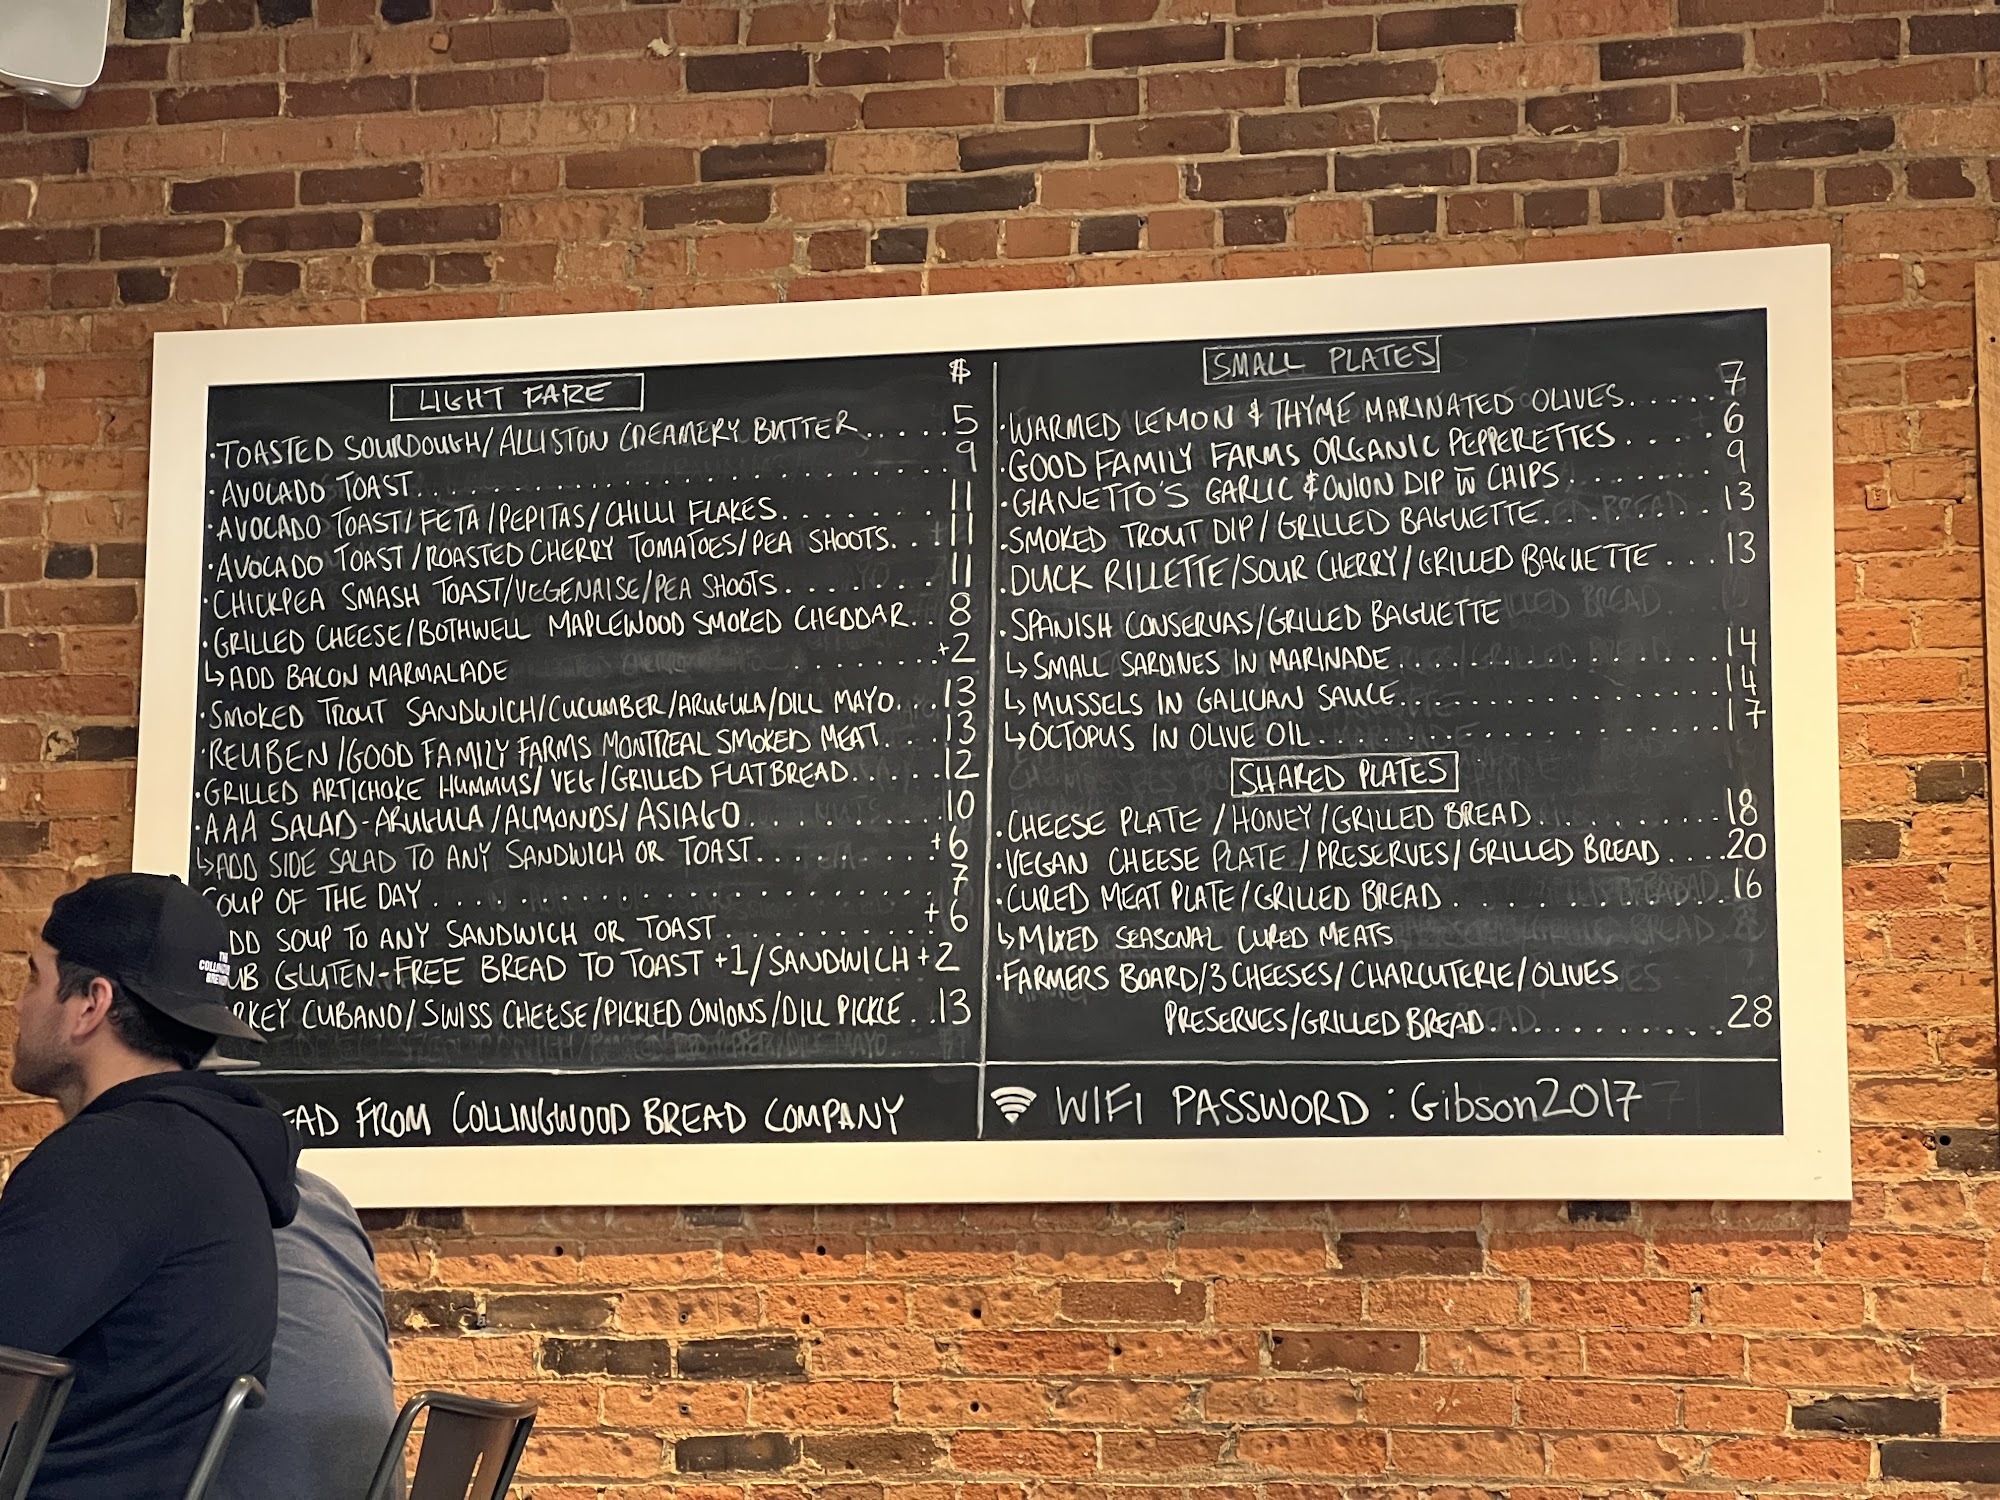 LIGHT FARE
$
• TOASTED SOURDOUGH/ALLISTON CREAMERY BUTTER.....5
• AVOCADO TOAST.........................9
• AVOCADO TOAST/FETA/PEPITAS/CHILLI FLAKES.......11
• AVOCADO TOAST/ROASTED CHERRY TOMATOES/PEA SHOOTS...11
• CHICKPEA SMASH TOAST/VEGENAISE/PEA SHOOTS.......11
• GRILLED CHEESE/BOTHWELL MAPLEWOOD SMOKED CHEDDAR..8
↳ ADD BACON MARMALADE ........+2
• SMOKED TROUT SANDWICH/CUCUMBER/ARUGULA/DILL MAYO...13
• REUBEN/GOOD FAMILY FARMS MONTREAL SMOKED MEAT...13
• GRILLED ARTICHOKE HUMMUS/VEG/GRILLED FLATBREAD.....12
• AAA SALAD-ARUGULA/ALMONDS/ASIAGO..........10
↳ ADD SIDE SALAD TO ANY SANDWICH OR TOAST.........+6
SOUP OF THE DAY....................7
ADD SOUP TO ANY SANDWICH OR TOAST..........+6
GLUTEN-FREE BREAD TO TOAST +1/SANDWICH +2
CUBANO/SWISS CHEESE/PICKLED ONIONS/DILL PICKLE..13
FROM COLLINGWOOD BREAD COMPANY
SMALL PLATES
• WARMED LEMON & THYME MARINATED OLIVES.....7
• GOOD FAMILY FARMS ORGANIC PEPPERETTES....6
• GIANETTO'S GARLIC & ONION DIP w̄ CHIPS......9
• SMOKED TROUT DIP/GRILLED BAGUETTE........13
• DUCK RILLETTE/SOUR CHERRY/GRILLED BAGUETTE...13
• SPANISH CONSERVAS/GRILLED BAGUETTE
↳ SMALL SARDINES IN MARINADE...............14
↳ MUSSELS IN GALICIAN SAUCE...............14
↳ OCTOPUS IN OLIVE OIL..................17
SHARED PLATES
• CHEESE PLATE/HONEY/GRILLED BREAD.........18
• VEGAN CHEESE PLATE/PRESERVES/GRILLED BREAD....20
• CURED MEAT PLATE/GRILLED BREAD..........16
↳ MIXED SEASONAL CURED MEATS
• FARMERS BOARD/3 CHEESES/CHARCUTERIE/OLIVES
PRESERVES/GRILLED BREAD..........28
WIFI PASSWORD: Gibson2017